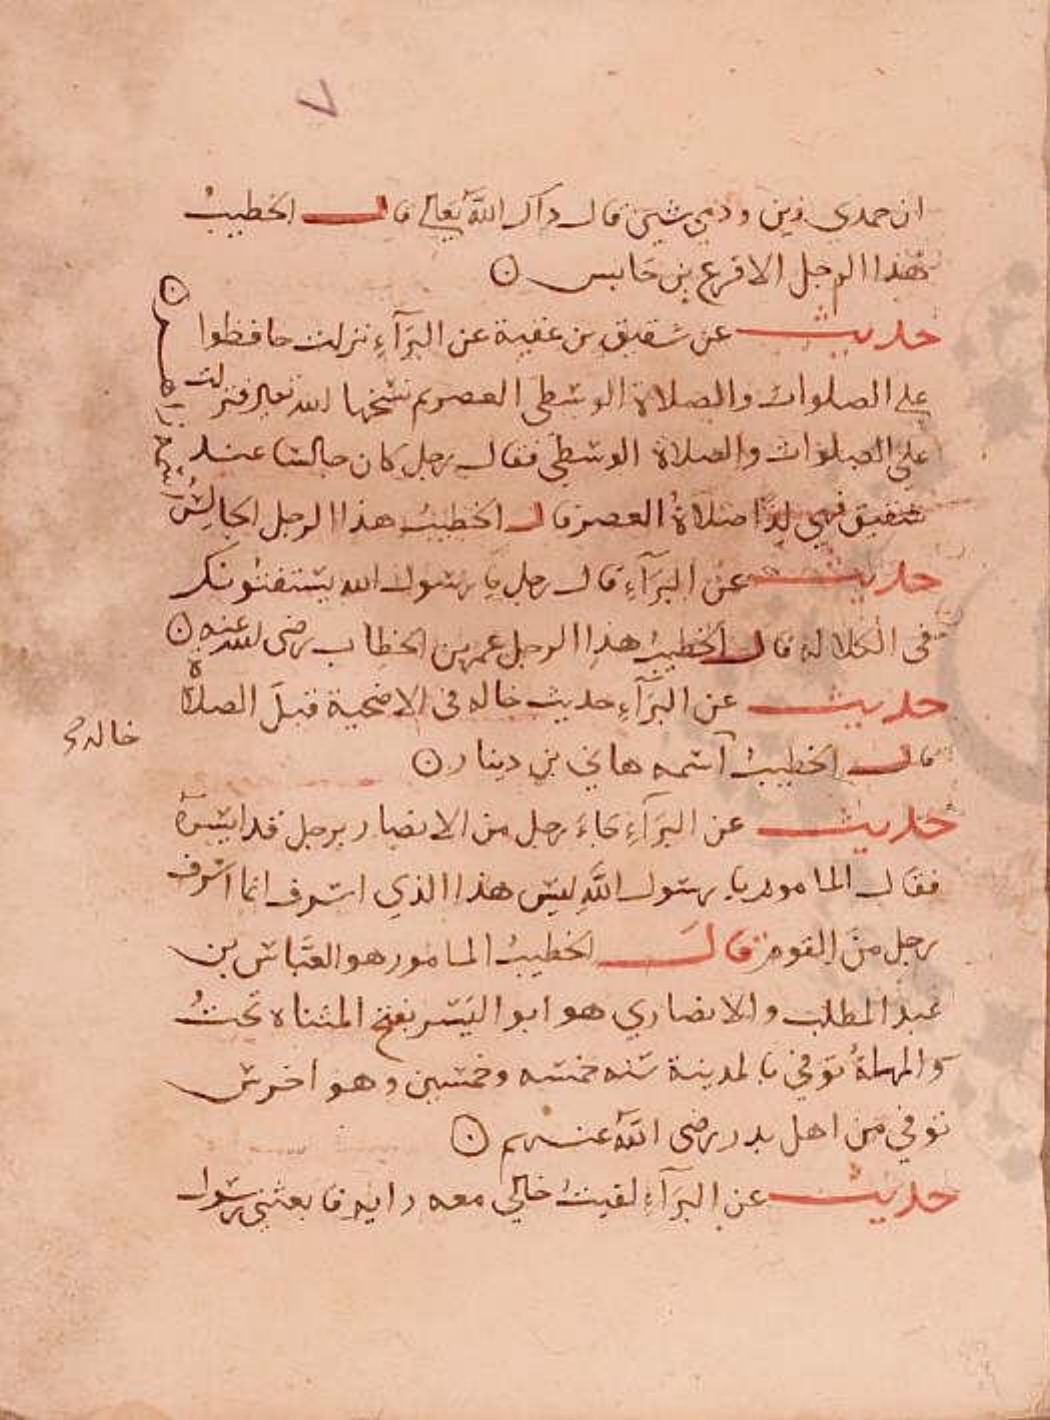 ٧
ان حمدي زين وذمي شين قال ذاك الله تعالى قال الخطيب
هذا الرجل الاقرع بن حابس
حديث عن شقيق بن عقبة عن البرآء نزلت حافظوا
على الصلوات والصلاة الوسطى العصر ثم نسخها الله تعالى فنزلت
على الصلوات والصلاة الوسطى فقال رجل كان جالسا عند
شقيق فهي إذا صلاة العصر قال الخطيب هذا الرجل الجالس
حديث عن البرآء قال رجل يا رسول الله يستفتونك
فى الكلالة قال الخطيب هذا الرجل عمر بن الخطاب رضى الله عنه
حديث عن البرآء حديث خاله فى الاضحية قبل الصلاة
خاله
قال الخطيب آسمه هاني بن دينار
حديث عن البرآء جاء رجل من الانصار برجل قد اسره
فقال المامور يا رسول الله ليس هذا الذي اسرف انما اسرف
رجل من القوم قال الخطيب المامور هو العباس بن
عبد المطلب والانصاري هو ابو اليسر بفتح المثناة تحت
والمهملة توفي بالمدينة سنه خمسه وخمسين وهو اخر من
توفي من اهل بدر رضى الله عنهم
حديث عن البرآء لقيت خالي معه رايه فا بعثني رسول